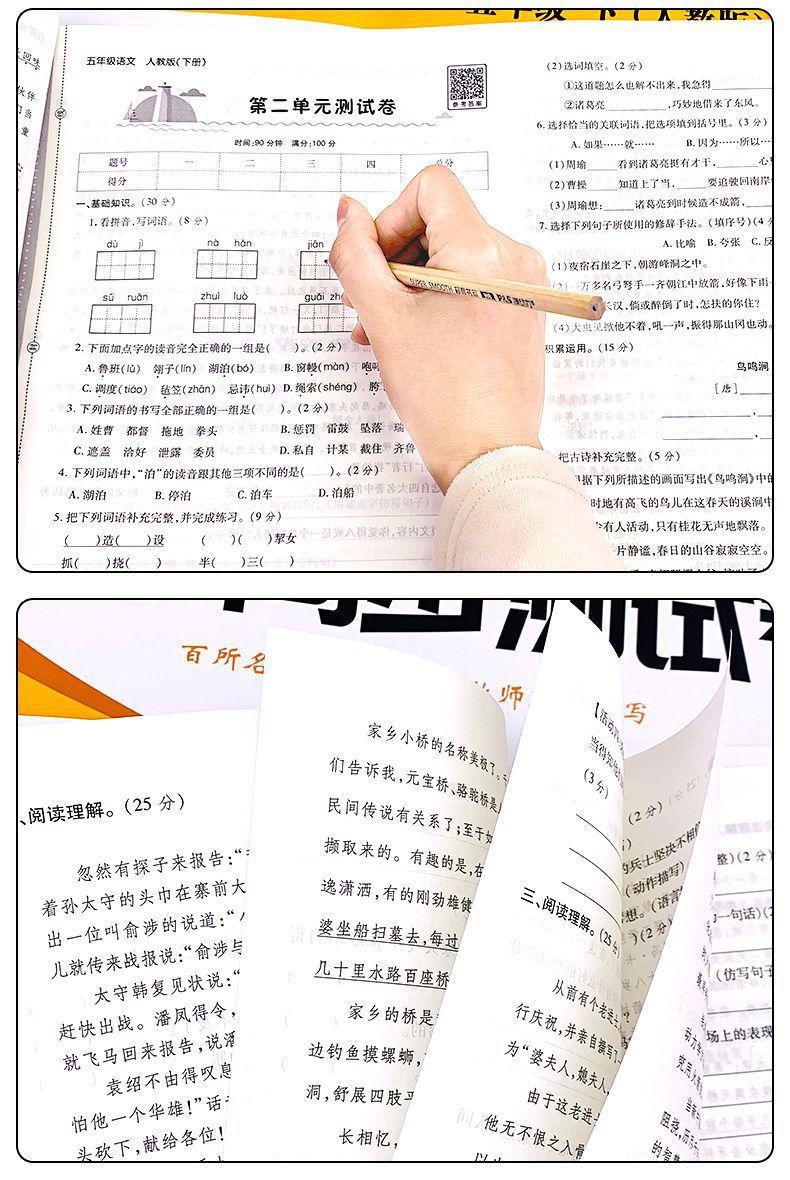 五年级 下(人教版)
五年级语文 人教版(下册)
第二单元测试卷
参考答案
时间:90分钟 满分:100分
题号 一 二 三 四 总分
得分
一、基础知识。(30分)
1.看拼音,写词语。(8分)
dù jì nà hǎn jiān
sū ruǎn zhuì luò guǎi
2.下面加点字的读音完全正确的一组是( )。(2分)
A.鲁班(lǔ) 翎子(lín) 湖泊(bó) B.窗幔(màn) 咆哮
C.调度(tiáo) 毡笠(zhān) 忌讳(huì) D.绳索(shéng) 胯
3.下列词语的书写全部正确的一组是( )。(2分)
A.姓曹 都督 拖地 拳头 B.惩罚 雷鼓 坠落 瑞
C.遮盖 洽好 泄露 委员 D.私自 计某 截住 齐鲁
4.下列词语中,“泊”的读音跟其他三项不同的是( )。(2分)
A.湖泊 B.停泊 C.泊车 D.泊船
5.把下列词语补充完整,并完成练习。(9分)
( )造( )设 ( )( )挈女
抓( )挠( ) 半( )三( )
(2)选词填空。(2分)
①这道题怎么也解不出来,我急得
②诸葛亮 ,巧妙地借来了东风。
6.选择恰当的关联词语,把选项填到括号里。(3分)
A.如果……就…… B.因为……所以…
(1)周瑜 看到诸葛亮挺有才干, 心
(2)曹操 知道上了当, 要追驶回南岸
(3)周瑜想: 诸葛亮到时候造不成箭,
7.选择下列句子所使用的修辞手法。(填序号)(4
A.比喻 B.夸张 C.反
(1)夜宿石崖之下,朝游峰洞之中。
一万多名弓弩手一齐朝江中放箭,好像下雨一
长汉,倘或醉倒了时,怎扶的你住?
(4)大虫见掀他不着,吼一声,振得那山冈也动。
积累运用。(15分)
鸟鸣涧
[唐]
把古诗补充完整。(5分)
据下列所描述的画面写出《鸟鸣涧》中的
时地有高飞的鸟儿在这春天的溪涧中
少有人活动,只有桂花无声地飘落。
片静谧,春日的山谷寂寂空空。
SUPER SMOOTH
测试卷
百所名
师
写
、阅读理解。(25分)
忽然有探子来报告:“
着孙太守的头巾在寨前大
出一位叫俞涉的说道:“
儿就传来战报说:“俞涉与
太守韩复见状说:“
赶快出战。潘凤得令,
就飞马回来报告,说潘
袁绍不由得叹息
怕他一个华雄!”话
头砍下,献给各位!
家乡小桥的名称美极了。
们告诉我,元宝桥、骆驼桥是
民间传说有关系了;至于如
撷取来的。有趣的是,在
逸潇洒,有的刚劲雄健
婆坐船扫墓去,每过
几十里水路百座桥
家乡的桥是
边钓鱼摸螺蛳,
洞,舒展四肢平
长相忆,
【活动
当得知
(3分)
三、阅读理解。(25分)
从前有个老进士
行庆祝,并亲自撰写了
为“婆夫人,媳夫人,
由于这老进士
他无不恨之入骨
(2分)
的兵士坚决不相
(动作描写)
想。(语言
)(2分)
整)(2分)
一句话)(2
(仿写句子
场上的表现
阻挠,历
的智慧